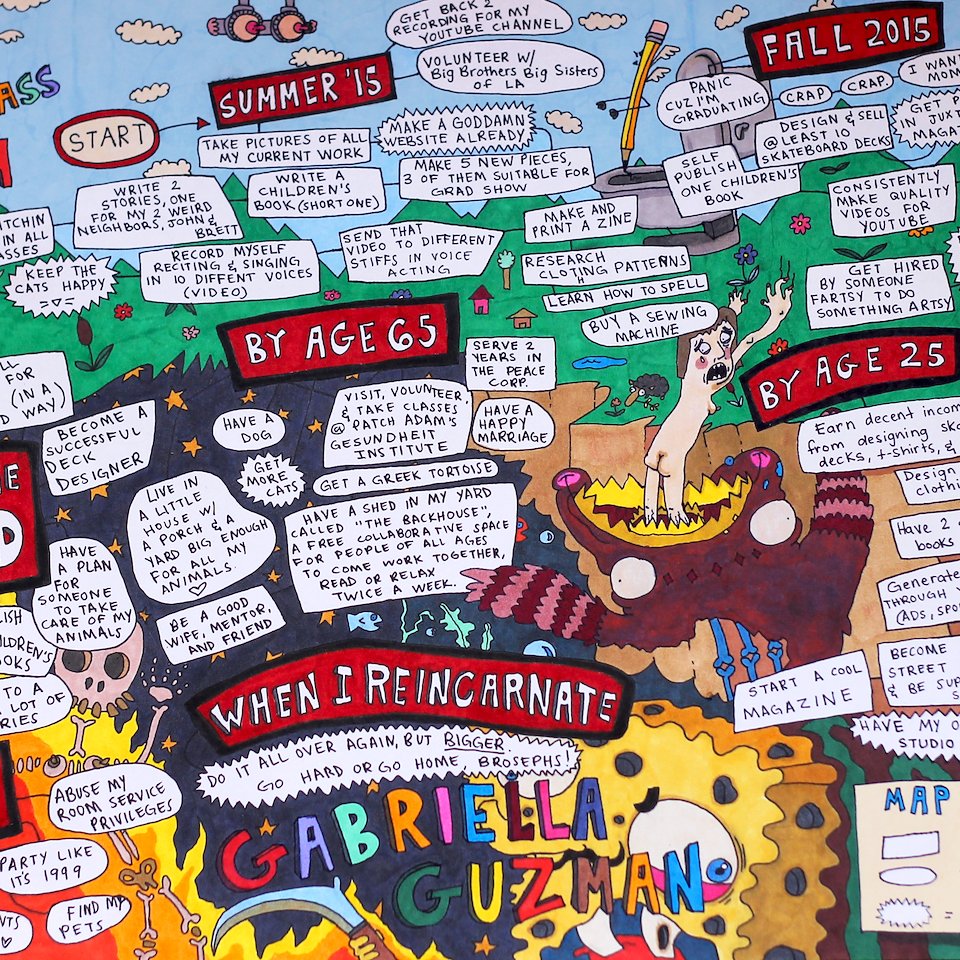 GET BACK 2
RECORDING FOR MY
YOUTUBE CHANNEL
VOLUNTEER W/
Big Brothers Big Sisters
OF LA
SUMMER '15
START
TAKE PICTURES OF ALL
MY CURRENT WORK
MAKE A GODDAMN
WEBSITE ALREADY
WRITE A
CHILDREN'S
BOOK (SHORT ONE)
MAKE 5 NEW PIECES,
3 OF THEM SUITABLE FOR
GRAD SHOW
WRITE 2
STORIES, ONE
FOR MY 2 WEIRD
NEIGHBORS, JOHN &
BRETT
IN ALL
KEEP THE
CATS HAPPY
RECORD MYSELF
RECITING & SINGING
IN 10 DIFFENT VOICES
(VIDEO)
SEND THAT
VIDEO TO DIFFERENT
STIFFS IN VOICE
ACTING
MAKE AND
PRINT A ZINE
RESEARCH
CLOTING PATTERNS
H
LEARN HOW TO SPELL
BUY A SEWING
MACHINE
FALL 2015
PANIC
CUZ I'M
GRADUATING
CRAP
CRAP
I WAN
MOM
DESIGN & SELL
@ LEAST 10
SKATEBOARD DECKS
GET P
IN JUXT
MAGA
SELF
PUBLISH
ONE CHILDREN'S
BOOK
CONSISTENTLY
MAKE QUALITY
VIDEOS FOR
YOUTUBE
GET HIRED
BY SOMEONE
FARTSY TO DO
SOMETHING ARTSY
BY AGE 65
SERVE 2
YEARS IN
THE PEACE
CORP.
FOR
(IN A
WAY)
BECOME A
SUCCESSFUL
DECK
DESIGNER
HAVE A
DOG
VISIT, VOLUNTEER,
& TAKE CLASSES
@ PATCH ADAM'S
GESUNDHEIT
INSTITUTE
HAVE A
HAPPY
MARRIAGE
GET
MORE
CATS
GET A GREEK TORTOISE
LIVE IN
A LITTLE
HOUSE W/
A PORCH & A
YARD BIG ENOUGH
FOR ALL MY
ANIMALS.
HAVE A SHED IN MY YARD
CALLED "THE BACKHOUSE",
A FREE COLLABORATIVE SPACE
FOR PEOPLE OF ALL AGES
TO COME WORK TOGETHER,
READ OR RELAX
TWICE A WEEK.
HAVE
A PLAN
FOR
SOMEONE
TO TAKE
CARE OF MY
ANIMALS
BE A GOOD
WIFE, MENTOR,
AND FRIEND
BY AGE 25
Earn decent incom
from designing ska
decks, t-shirts, &
Design
clothi
Have 2
books
Generate
THROUGH Y
(ADS, SPO
BECOME
STREET
& BE SUP
START A COOL
MAGAZINE
HAVE MY O
STUDIO
TO A
LOT OF
WHEN I REINCARNATE
DO IT ALL OVER AGAIN, BUT BIGGER.
GO HARD OR GO HOME, BROSEPHS!
ABUSE MY
ROOM SERVICE
PRIVILEGES
PARTY LIKE
IT'S 1999
FIND MY
PETS
GABRIELLA
GUZMAN
MAP
=